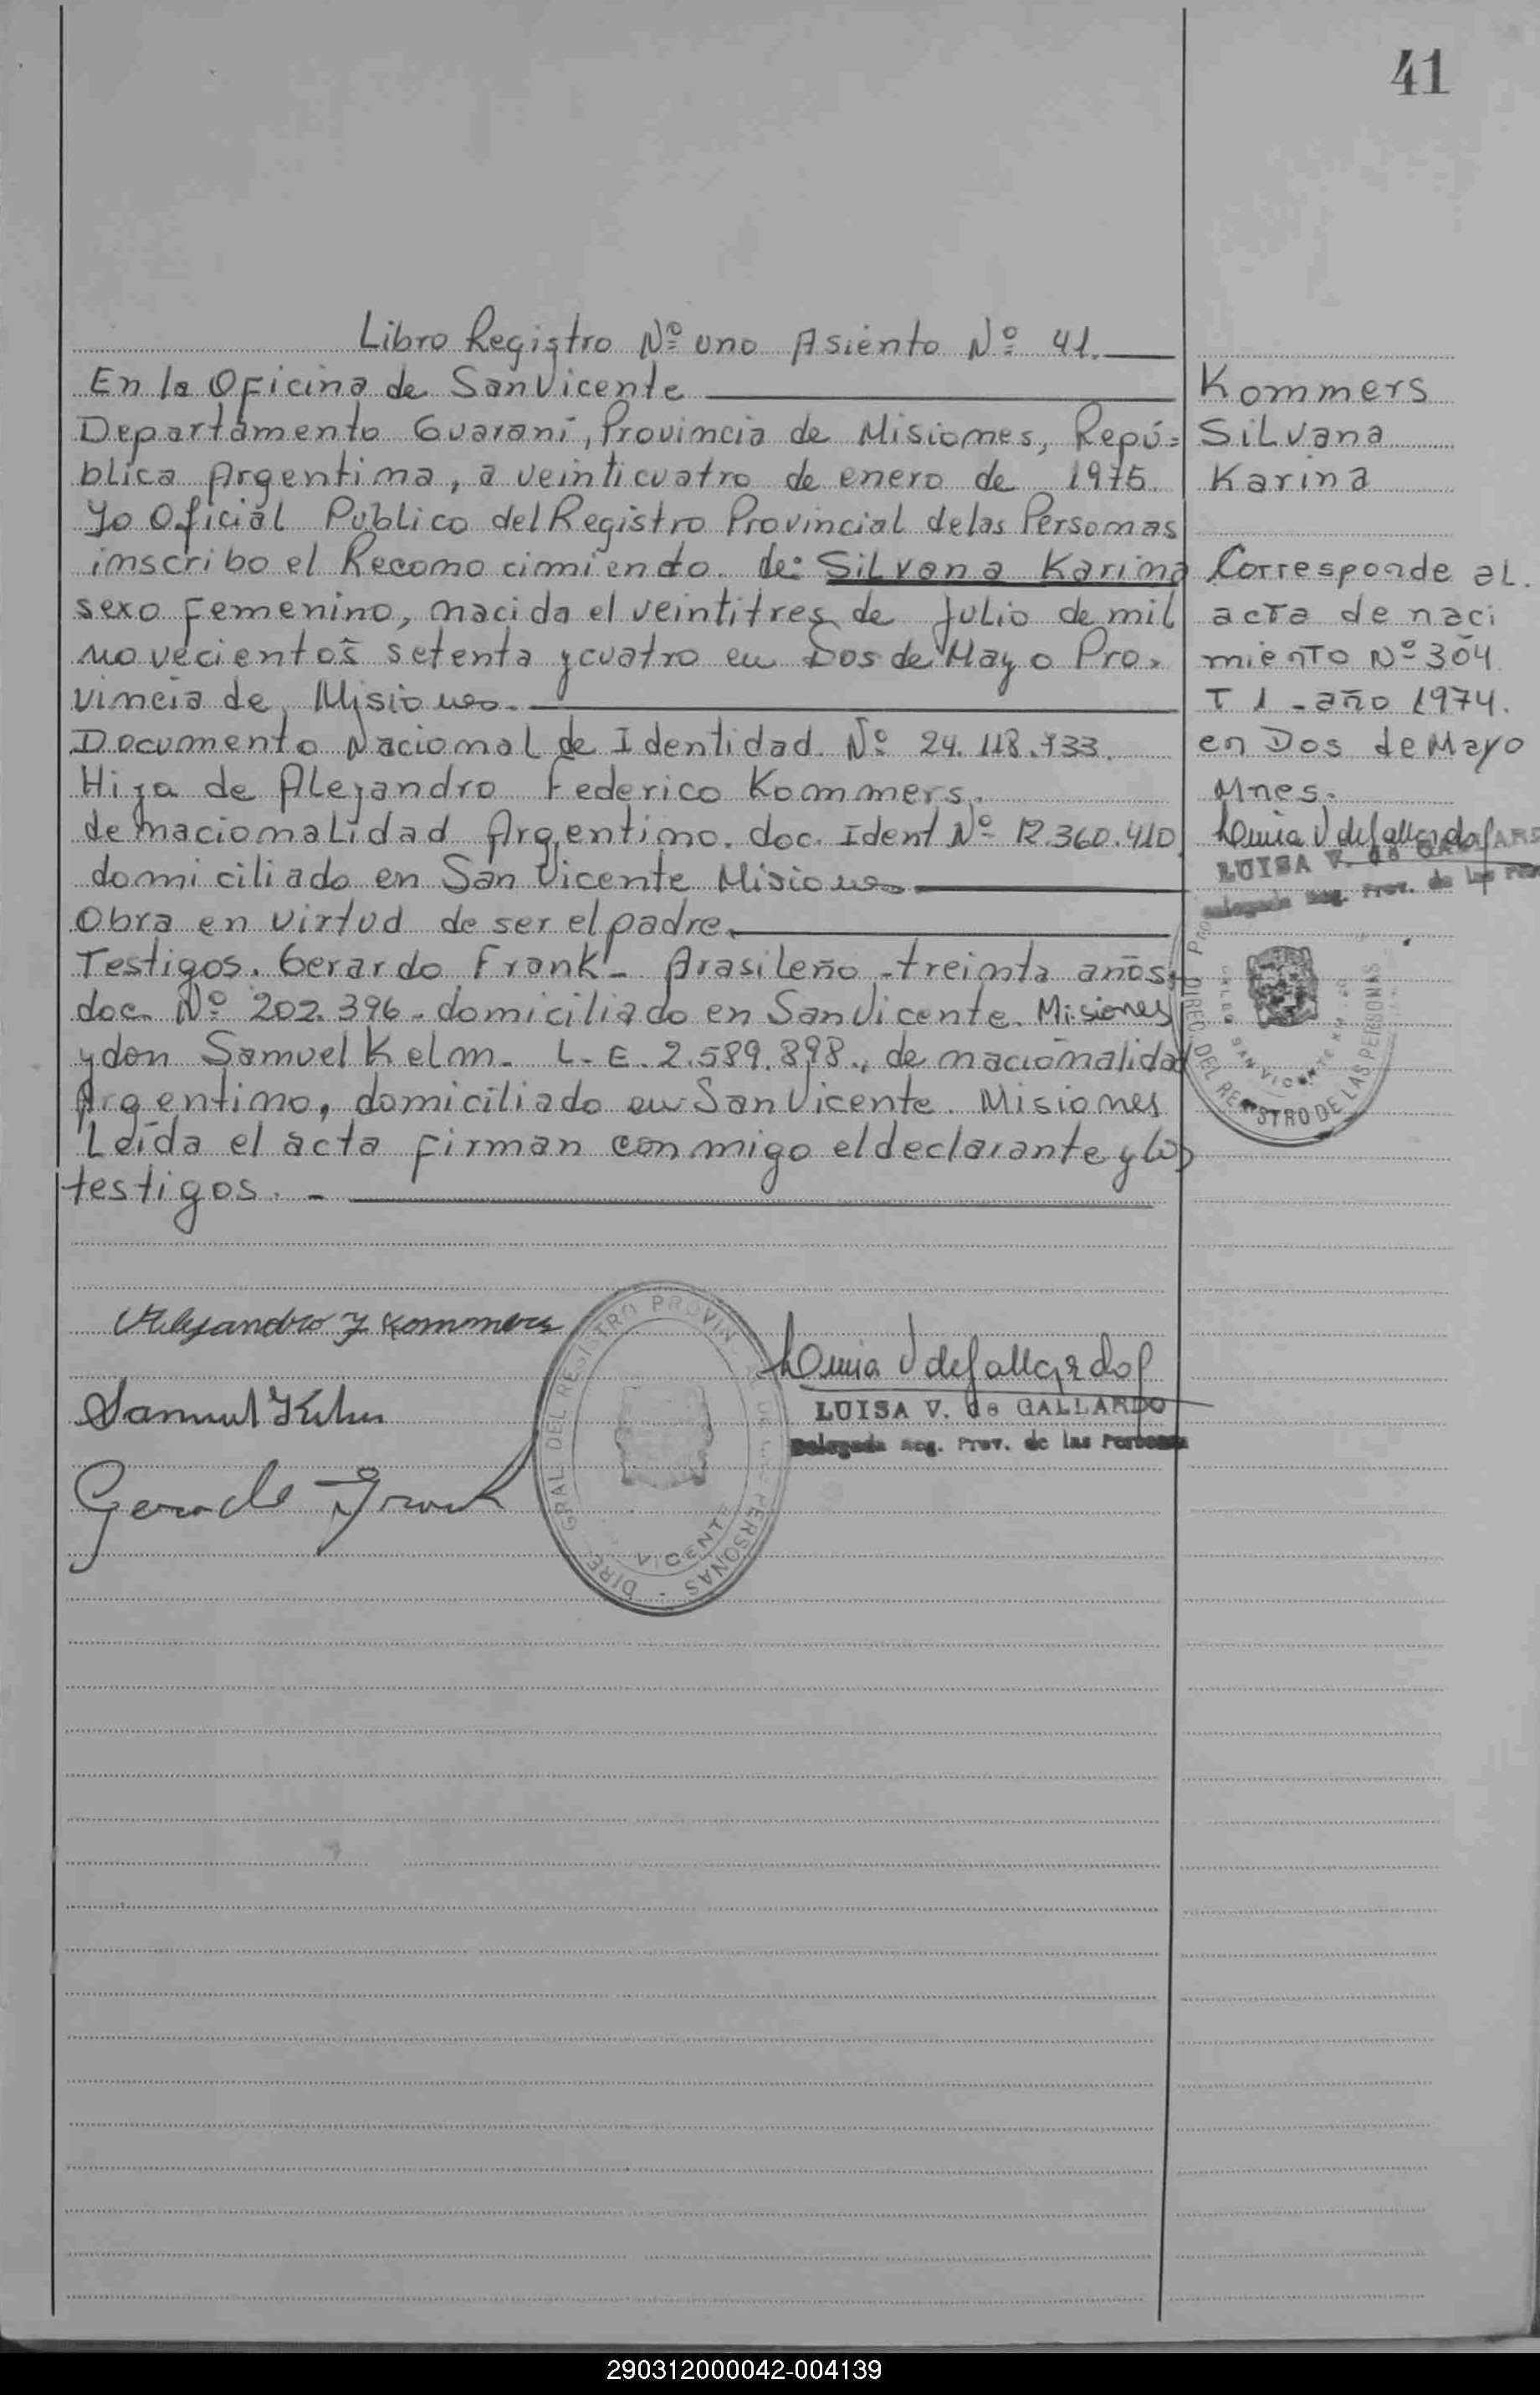 41
Libro Registro Nº uno Asiento Nº 41.
En la Oficina de San Vicente
Departamento Guaraní, Provincia de Misiones, Repú=
blica Argentina, a veinticuatro de enero de 1975.
Yo Oficial Publico del Registro Provincial de las Personas
inscribo el Reconocimiento de: Silvana Karina
sexo Femenino, nacida el veintitres de Julio de mil
novecientos setenta y cuatro en Dos de Mayo Pro-
vincia de Misiones.
Documento Nacional de Identidad Nº 24.118.733.
Hija de Alejandro Federico Kommers.
de nacionalidad Argentino. doc. Ident Nº 12.360.410
domiciliado en San Vicente Misiones
Obra en virtud de ser el padre.
Testigos. Gerardo Frank - Brasileño - treinta años,
doc. Nº 202.396 - domiciliado en San Vicente. Misiones
y don Samuel Kelm. L.E. 2.589.898., de nacionalidad
Argentino, domiciliado en San Vicente. Misiones
Leída el acta firman conmigo el declarante y los
testigos. -
Alejandro F Kommers
Samuel Kelm
Gerardo Frank
Luisa V de Gallardo
LUISA V. de GALLARDO
Delegada Reg. Prov. de las Personas
DIREC. GRAL. DEL REGISTRO PROVIN DE LAS PERSONAS
VICENTE
Kommers
Silvana
Karina
Corresponde al
acta de naci
miento Nº 304
T 1 - año 1974.
en Dos de Mayo
Mnes.
Luisa V de Gallardo
LUISA V. de GALLARDO
Delegada Reg. Prov. de las Per
DIREC. DEL REGISTRO DE LAS PERSONAS
SAN VICENTE
290312000042-004139